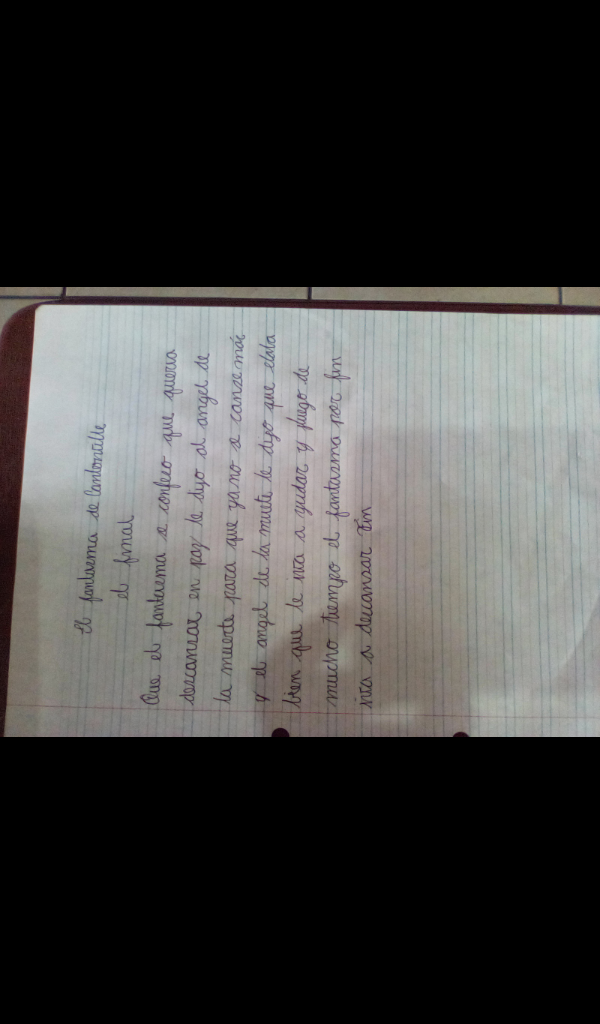 El fantasma de Canterville
el final
Que el fantasma se confeso que queria
descansar en paz le dijo al angel de
la muerte para que ya no se canse más
y el angel de la muerte le dijo que estaba
bien que le iva a yudar y luego de
mucho tiempo el fantasma por fin
iva a descansar Fin